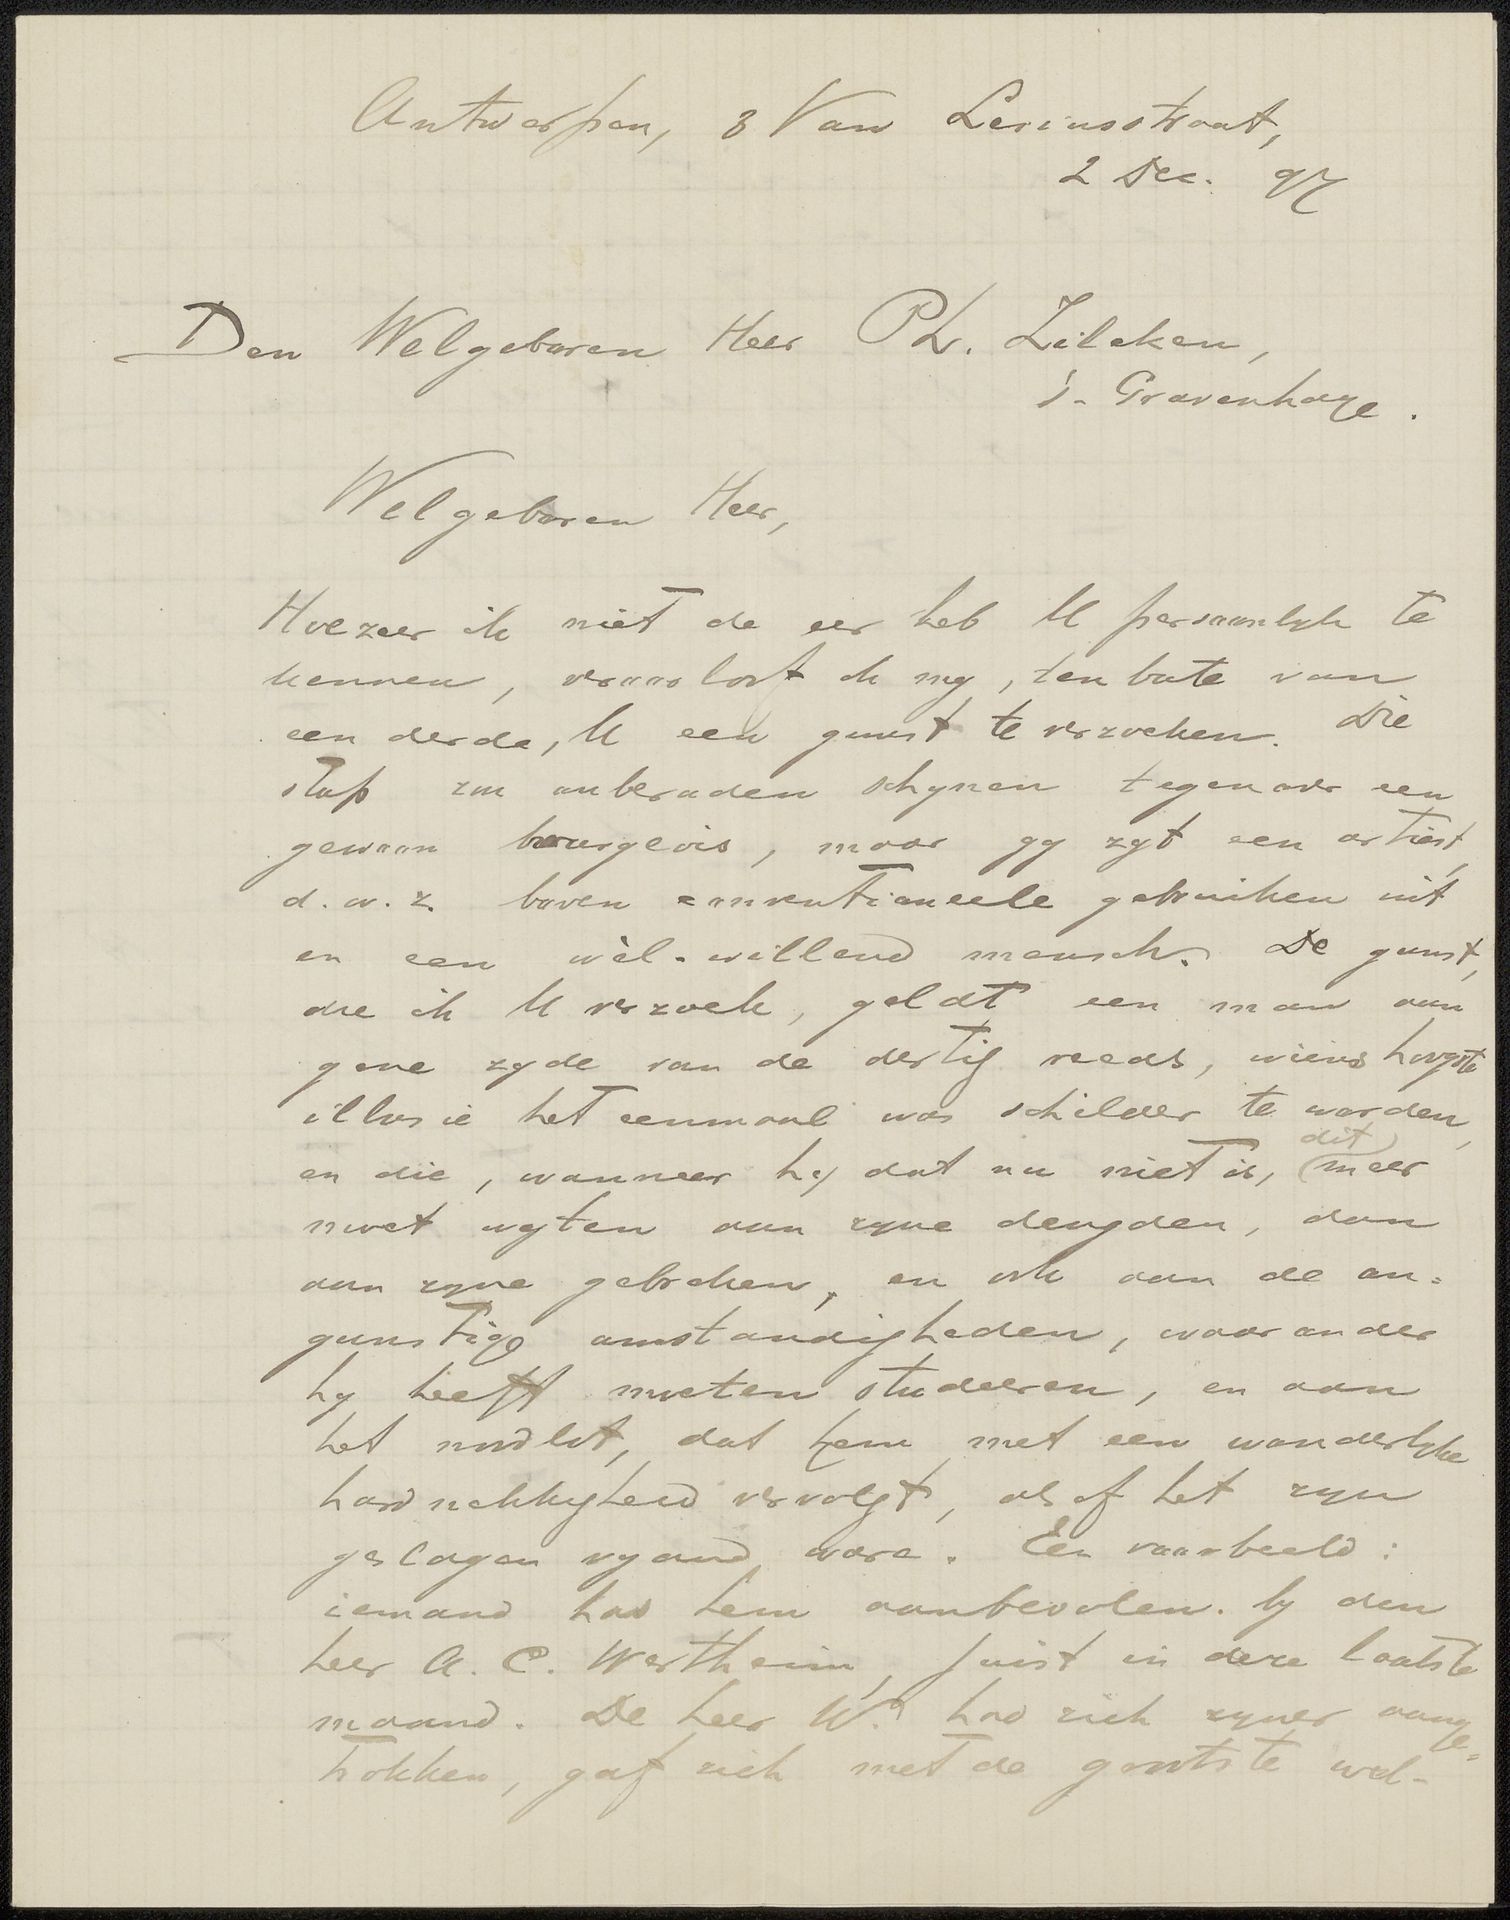 Antwerpen, 3 Van Leriusstraat,
2 Dec. 97
Den Welgeboren Heer Ph. Zilcken,
's-Gravenhage.
Welgeboren Heer,
Hoezeer ik niet de eer heb U persoonlyk te
kennen, veroorloof ik my, ten bate van
een derde, U een gunst te verzoeken. Die
stap zou onberaden schynen tegenover een
gewoon bourgeois, maar gy zyt een artiest,
d.w.z. boven conventioneele gebruiken uit
en een wèl-willend mensch. De gunst,
die ik U verzoek, geldt een man aan
gene zyde van de dertig reeds, wiens hoogste
illusie het eenmaal was schilder te worden,
en die, wanneer hy dat nu niet is, dit meer
moet wyten aan zyne deugden, dan
aan zyne gebreken, en ook aan de on-
gunstige omstandigheden, waaronder
hy heeft moeten studeeren, en aan
het noodlot, dat hem met een wonderlyke
hardnekkigheid vervolgt, alsof het zyn
geslagen vyand ware. Een voorbeeld:
iemand had hem aanbevolen by den
heer A. C. Wertheim, juist in deze laatste
maand. De heer W. had zich zyner aange-
trokken, gaf zich met de grootste wel-